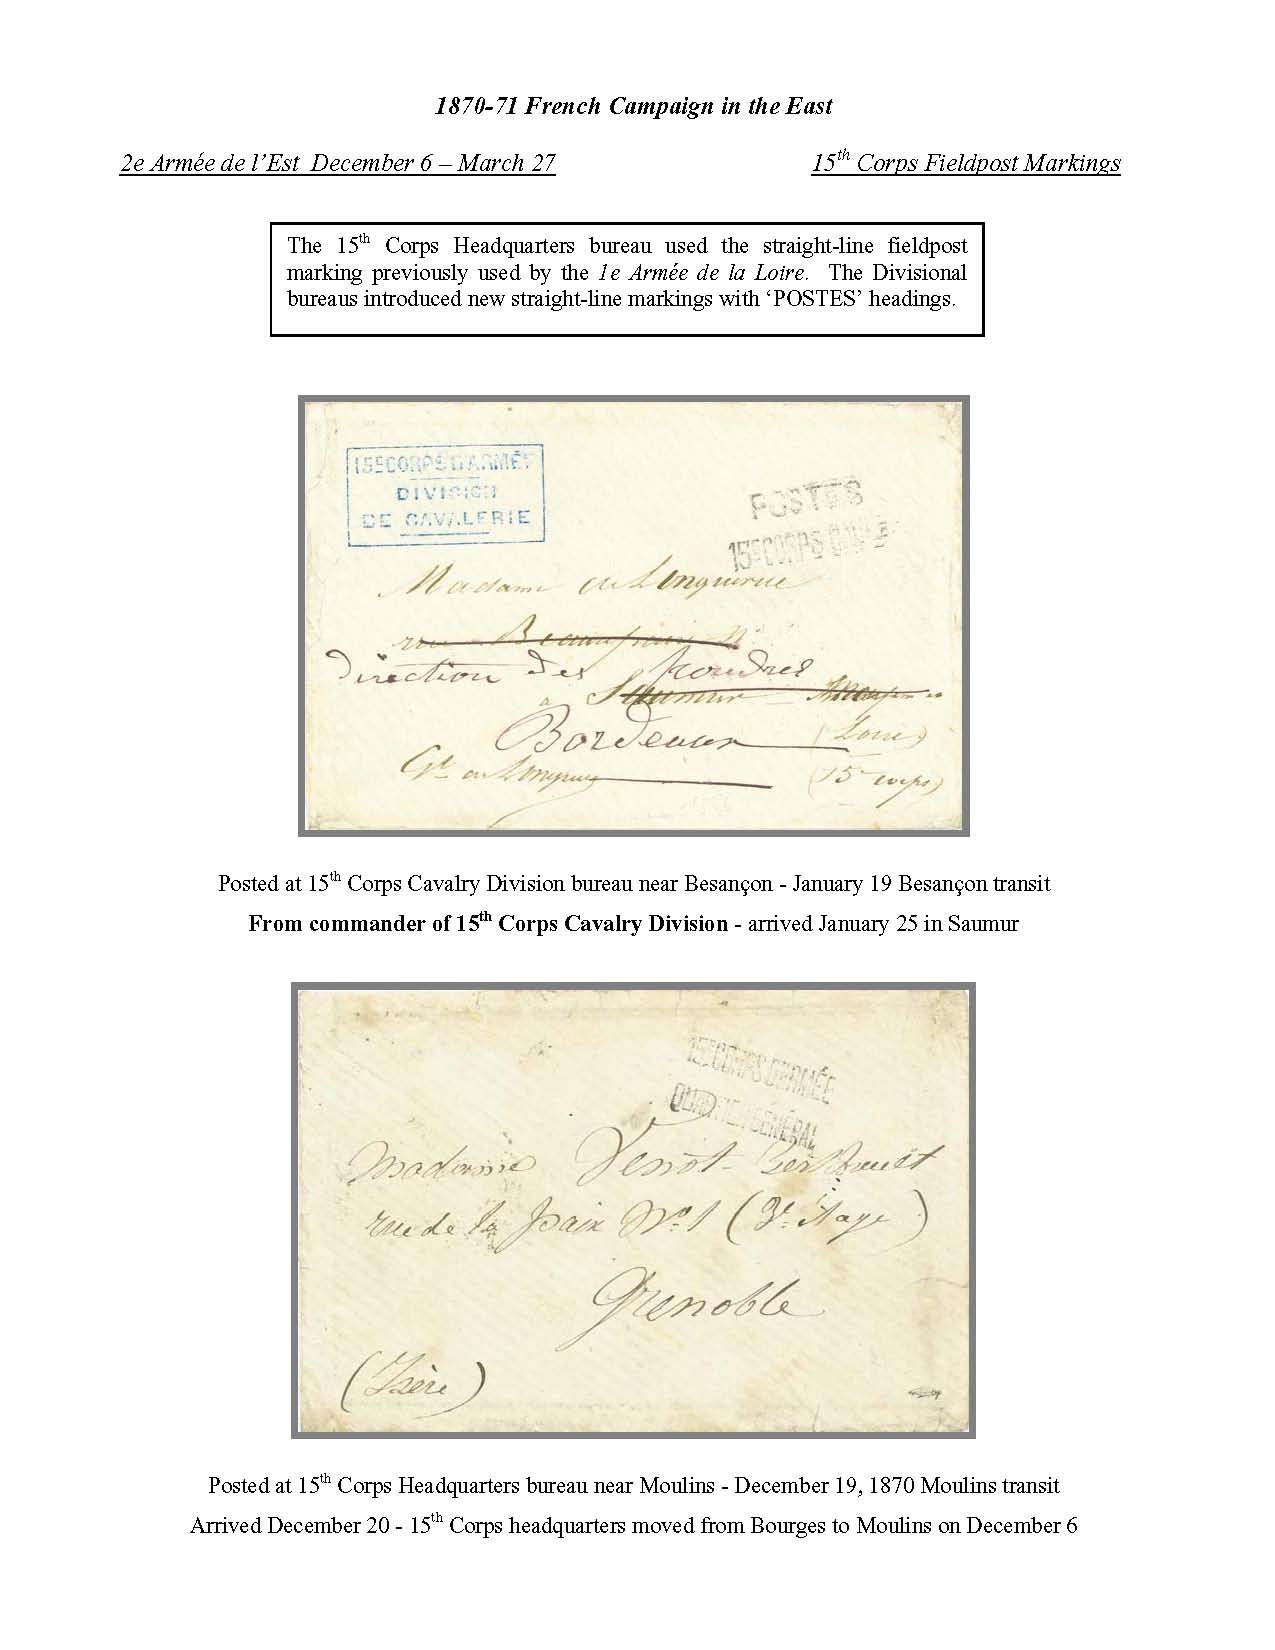 1870-71 French Campaign in the East
2e Armée de l’Est December 6 – March 27
15th Corps Fieldpost Markings
The 15th Corps Headquarters bureau used the straight-line fieldpost
marking previously used by the 1e Armée de la Loire. The Divisional
bureaus introduced new straight-line markings with ‘POSTES’ headings.
15E CORPS D'ARMÉE
DIVISION
DE CAVALERIE
POSTES
15E CORPS
Madame
rue
direction des poudres
a Saumur
Bordeaux
(Loire)
(15e corps)
Posted at 15th Corps Cavalry Division bureau near Besançon - January 19 Besançon transit
From commander of 15th Corps Cavalry Division - arrived January 25 in Saumur
15E CORPS D'ARMÉE
QUARTIER GÉNÉRAL
Madame Venot-
rue de la paix No. 1 (3e. Etage)
Grenoble
(Isère)
Posted at 15th Corps Headquarters bureau near Moulins - December 19, 1870 Moulins transit
Arrived December 20 - 15th Corps headquarters moved from Bourges to Moulins on December 6